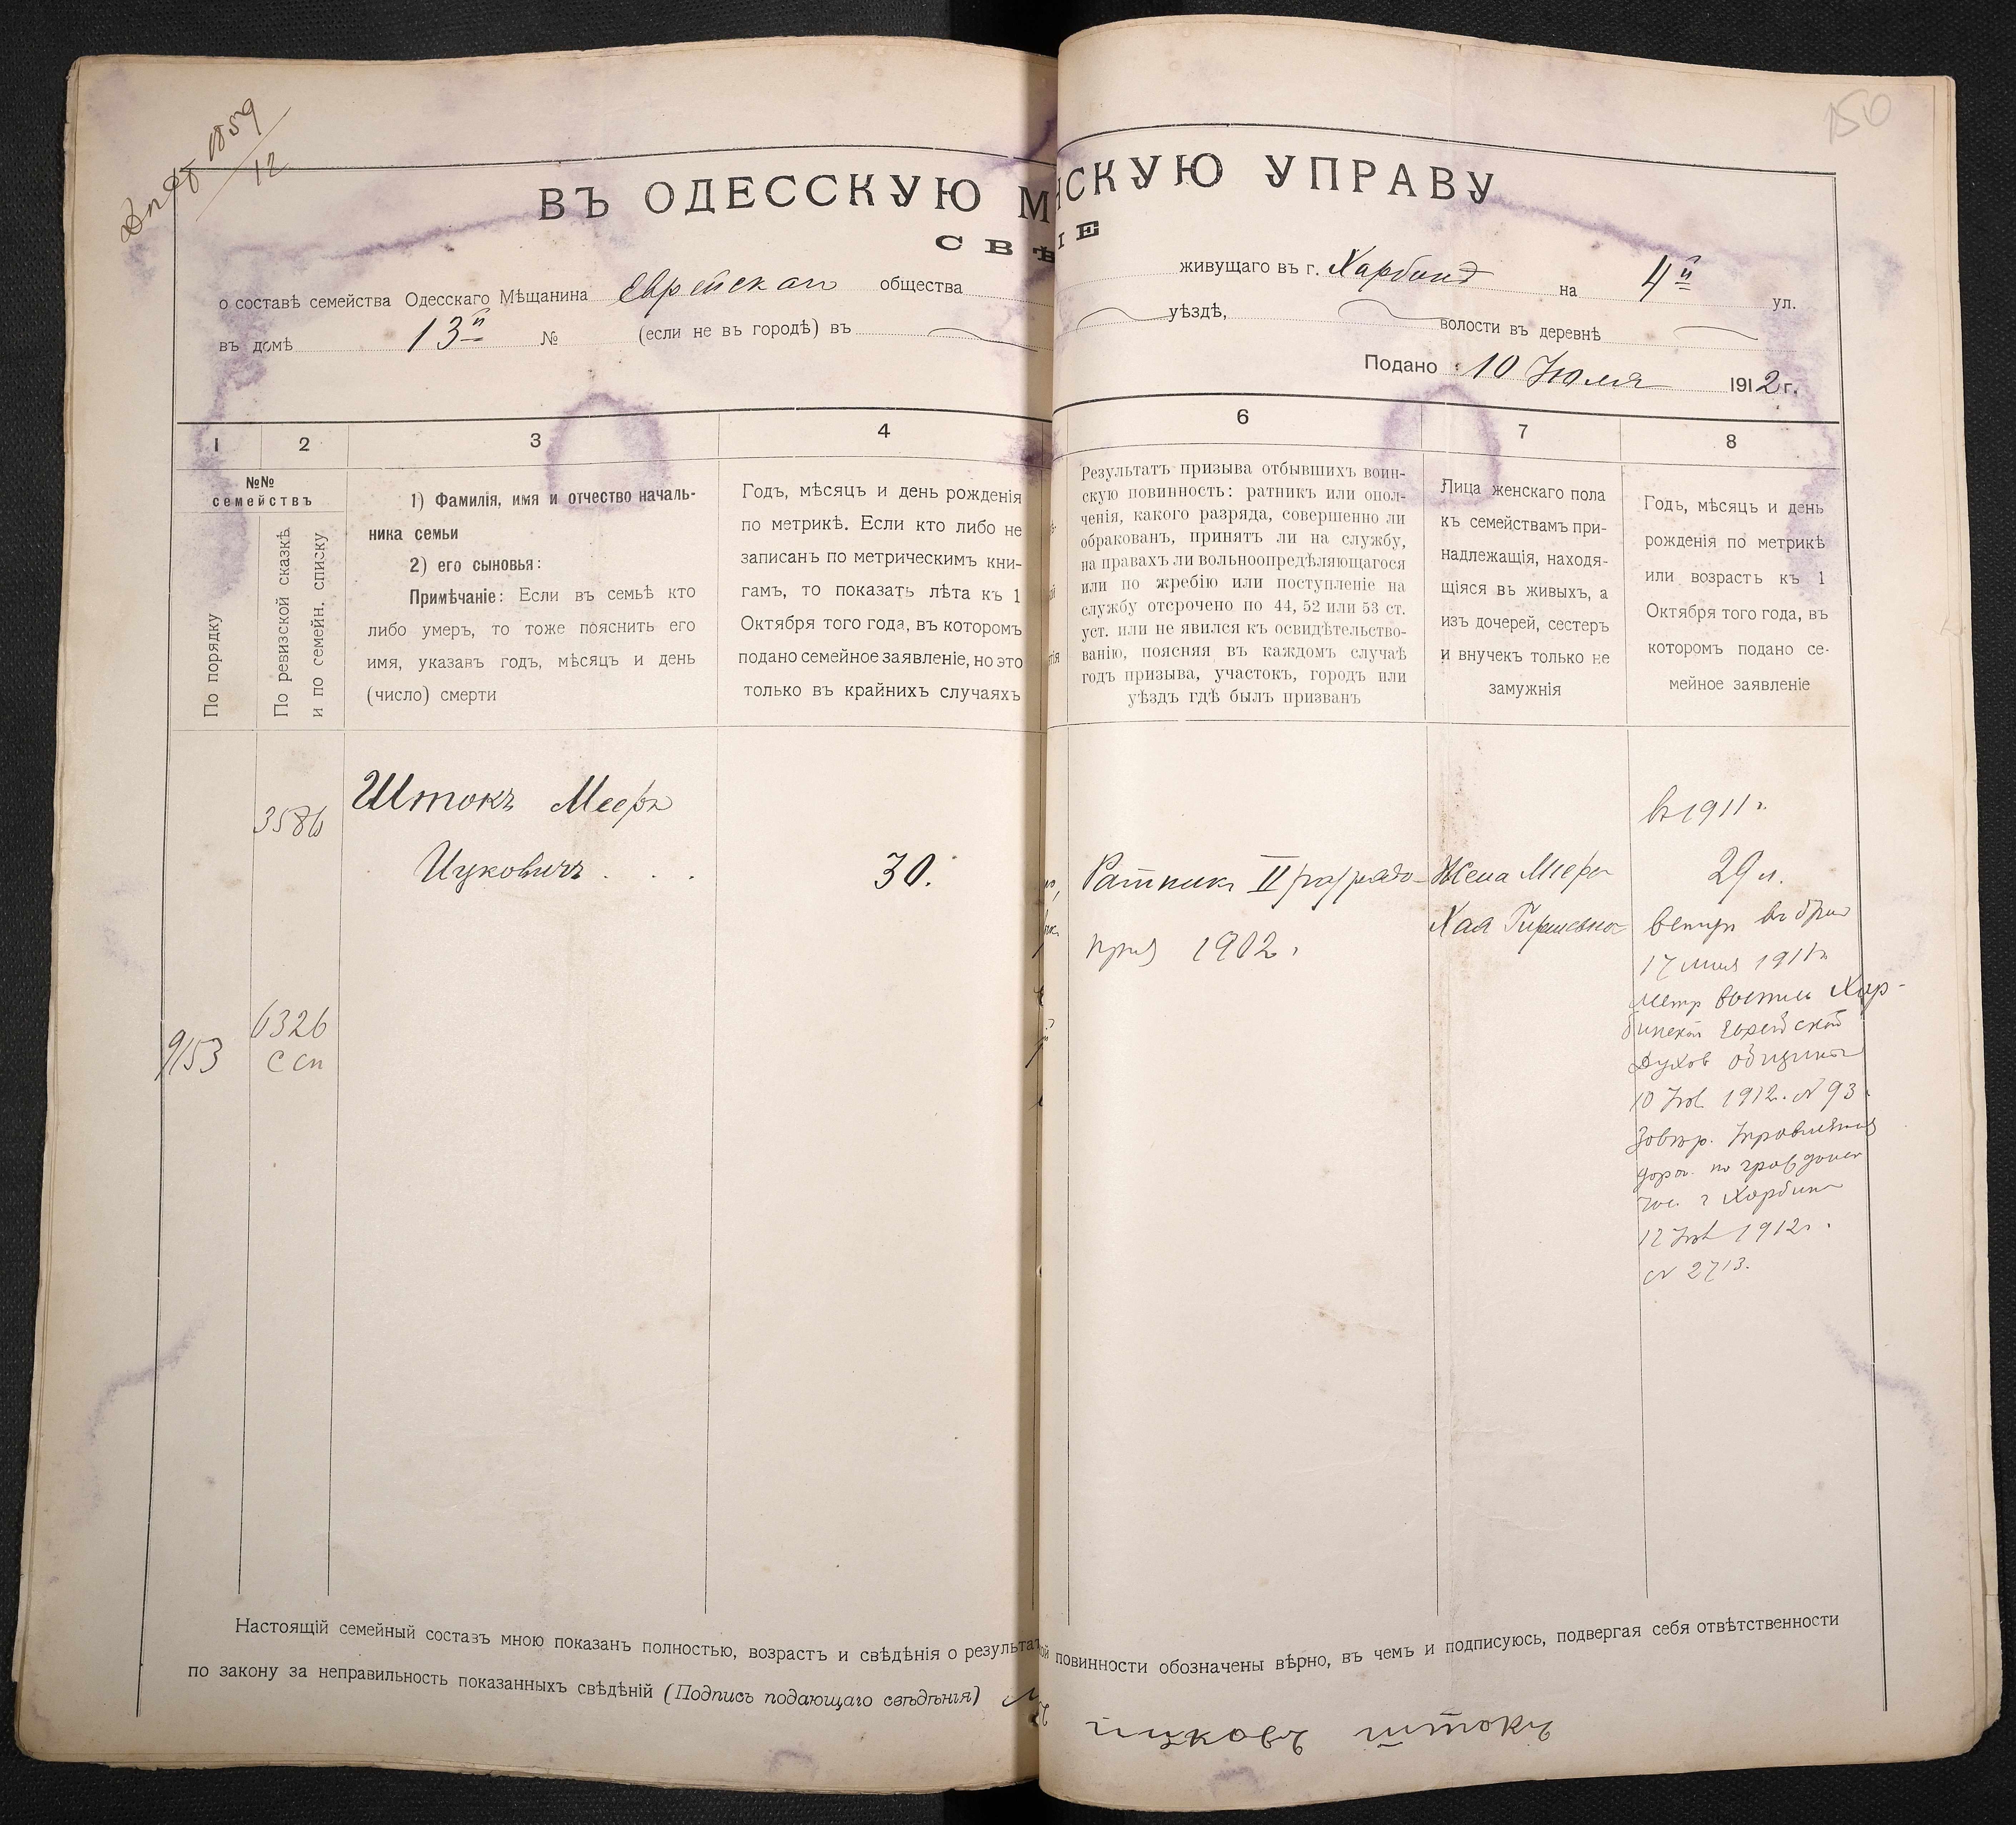 1859
12
150
ВЪ ОДЕССКУЮ М НСКУЮ УПРАВУ
СВѢ ІЕ
о составѣ семейства Одесскаго Мѣщанина Еврейскаго общества живущаго въ г. Харбинѣ на 4й ул.
въ домѣ 13й № (если не въ городѣ) въ уѣздѣ, волости въ деревнѣ
Подано 10 Іюля 1912 г.
1 2 3 4 6 7 8
№№
семействъ
По порядку
По ревизской сказкѣ
и по семейн. списку.
1) Фамилія, имя и отчество началь-
ника семьи
2) его сыновья:
Примѣчаніе: Если въ семьѣ кто
либо умеръ, то тоже пояснить его
имя, указавъ годъ, мѣсяцъ и день
(число) смерти
Годъ, мѣсяцъ и день рожденія
по метрикѣ. Если кто либо не
записанъ по метрическимъ кни-
гамъ, то показать лѣта къ 1
Октября того года, въ которомъ
подано семейное заявленіе, но это
только въ крайнихъ случаяхъ
Результатъ призыва отбывшихъ воин-
скую повинность: ратникъ или опол-
ченія, какого разряда, совершенно ли
обракованъ, принятъ ли на службу,
на правахъ ли вольноопредѣляющагося
или по жребію или поступленіе на
службу отсрочено по 44, 52 или 53 ст.
уст. или не явился къ освидѣтельство-
ванію, поясняя въ каждомъ случаѣ
годъ призыва, участокъ, городъ или
уѣздъ гдѣ былъ призванъ
Лица женскаго пола
къ семействамъ при-
надлежащія, находя-
щіяся въ живыхъ, а
изъ дочерей, сестеръ
и внучекъ только не
замужнія
Годъ, мѣсяцъ и день
рожденія по метрикѣ
или возрастъ къ 1
Октября того года, въ
которомъ подано се-
мейное заявленіе
3586
Штокъ Мееръ
Ицковичъ . . .
30.
Ратникъ II разряда
приз 1902 г.
Жена Меера
Хая Гершевна
въ 1911 г.
29 л.
вступ въ бракъ
17 мая 1911 г.
метр выпись Хар-
бинской Еврейской
Духов общины
10 Іюл 1912 г. № 93.
Завѣр. Управленія
дорог. по гражданск
час. г Харбина
12 Іюл 1912 г.
№ 2713.
9/153
6326
С сп
Настоящій семейный составъ мною показанъ полностью, возрастъ и свѣдѣнія о результат ой повинности обозначены вѣрно, въ чемъ и подписуюсь, подвергая себя отвѣтственности
по закону за неправильность показанныхъ свѣдѣній (Подпись подающаго свѣдѣнія) ицковъ штокъ